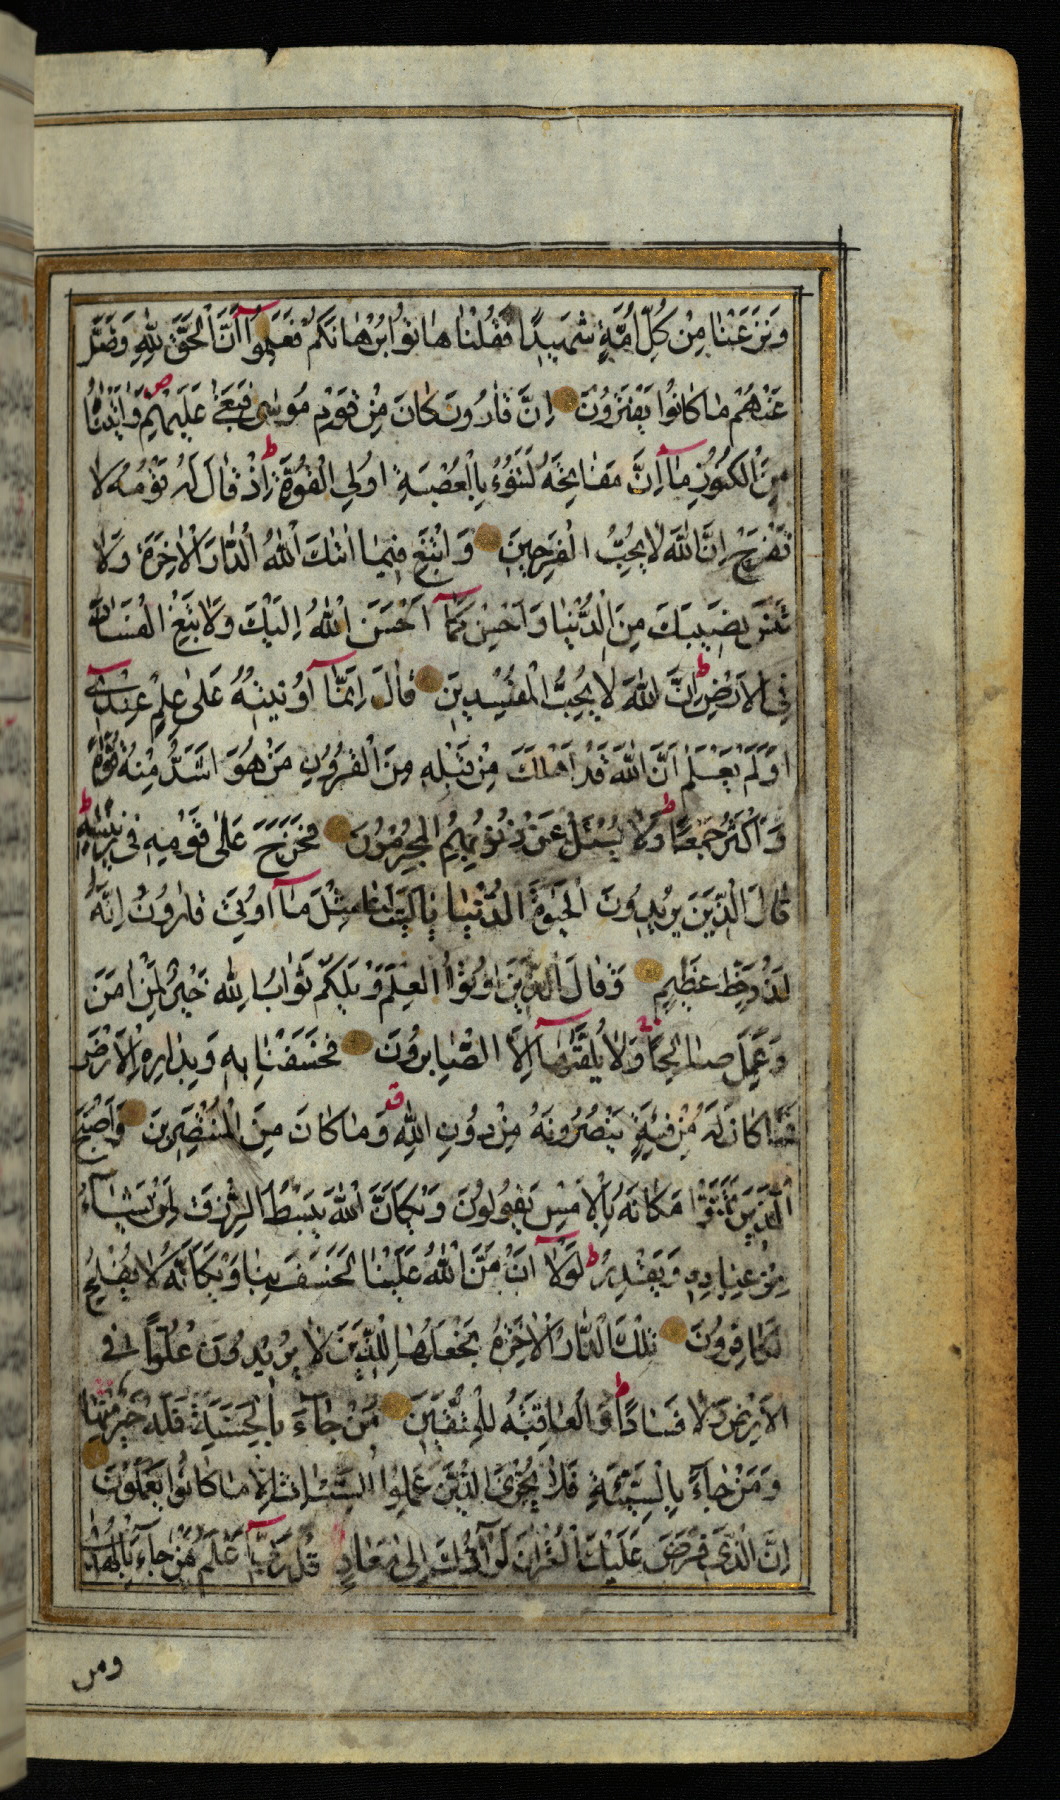 وَنَزَعْنَا مِنْ كُلِّ اُمَّةٍ شَهِيدًا فَقُلْنَا هَاتُوا بُرْهَانَكُمْ فَعَلِمُوآ اَنَّ الْحَقَّ لِلّٰهِ وَضَلَّ
عَنْهُمْ مَا كَانُوا يَفْتَرُونَ اِنَّ قَارُونَ كَانَ مِنْ قَوْمِ مُوسٰى فَبَغٰى عَلَيْهِمْ ص وَاٰتَيْنَاهُ
مِنَ الْكُنُوزِ مَآ اِنَّ مَفَاتِحَهُ لَتَنُوءُ بِالْعُصْبَةِ اُولِي الْقُوَّةِ ط اِذْ قَالَ لَهُ قَوْمُهُ لَا
تَفْرَحْ اِنَّ اللّٰهَ لَا يُحِبُّ الْفَرِحِينَ وَابْتَغِ فِيمَا اٰتٰكَ اللّٰهُ الدَّارَ الْاٰخِرَةَ وَلَا
تَنْسَ نَصِيبَكَ مِنَ الدُّنْيَا وَاَحْسِنْ كَمَآ اَحْسَنَ اللّٰهُ اِلَيْكَ وَلَا تَبْغِ الْفَسَادَ
فِي الْاَرْضِ ط اِنَّ اللّٰهَ لَا يُحِبُّ الْمُفْسِدِينَ قَالَ اِنَّمَآ اُوتِيتُهُ عَلٰى عِلْمٍ عِنْدِيٓ
اَوَلَمْ يَعْلَمْ اَنَّ اللّٰهَ قَدْ اَهْلَكَ مِنْ قَبْلِهِ مِنَ الْقُرُونِ مَنْ هُوَ اَشَدُّ مِنْهُ قُوَّةً
وَاَكْثَرُ جَمْعًا ط وَلَا يُسْئَلُ عَنْ ذُنُوبِهِمُ الْمُجْرِمُونَ فَخَرَجَ عَلٰى قَوْمِهِ فِي زِينَتِهِ ط
قَالَ الَّذِينَ يُرِيدُونَ الْحَيٰوةَ الدُّنْيَا يَا لَيْتَ لَنَا مِثْلَ مَآ اُوتِيَ قَارُونُ اِنَّهُ
لَذُو حَظٍّ عَظِيمٍ وَقَالَ الَّذِينَ اُوتُوا الْعِلْمَ وَيْلَكُمْ ثَوَابُ اللّٰهِ خَيْرٌ لِمَنْ اٰمَنَ
وَعَمِلَ صَالِحًا وَلَا يُلَقّٰهَآ اِلَّا الصَّابِرُونَ فَخَسَفْنَا بِهِ وَبِدَارِهِ الْاَرْضَ
فَمَا كَانَ لَهُ مِنْ فِئَةٍ يَنْصُرُونَهُ مِنْ دُونِ اللّٰهِ قف وَمَا كَانَ مِنَ الْمُنْتَصِرِينَ وَاَصْبَحَ
الَّذِينَ تَمَنَّوْا مَكَانَهُ بِالْاَمْسِ يَقُولُونَ وَيْكَاَنَّ اللّٰهَ يَبْسُطُ الرِّزْقَ لِمَنْ يَشَآءُ
مِنْ عِبَادِهِ وَيَقْدِرُ ط لَوْلَآ اَنْ مَنَّ اللّٰهُ عَلَيْنَا لَخَسَفَ بِنَا وَيْكَاَنَّهُ لَا يُفْلِحُ
الْكَافِرُونَ تِلْكَ الدَّارُ الْاٰخِرَةُ نَجْعَلُهَا لِلَّذِينَ لَا يُرِيدُونَ عُلُوًّا فِي
الْاَرْضِ وَلَا فَسَادًا ط وَالْعَاقِبَةُ لِلْمُتَّقِينَ مَنْ جَآءَ بِالْحَسَنَةِ فَلَهُ خَيْرٌ مِنْهَا
وَمَنْ جَآءَ بِالسَّيِّئَةِ فَلَا يُجْزَى الَّذِينَ عَمِلُوا السَّيِّئَاتِ اِلَّا مَا كَانُوا يَعْمَلُونَ
اِنَّ الَّذِي فَرَضَ عَلَيْكَ الْقُرْاٰنَ لَرَآدُّكَ اِلٰى مَعَادٍ قُلْ رَبِّيٓ اَعْلَمُ مَنْ جَآءَ بِالْهُدٰى
ومن